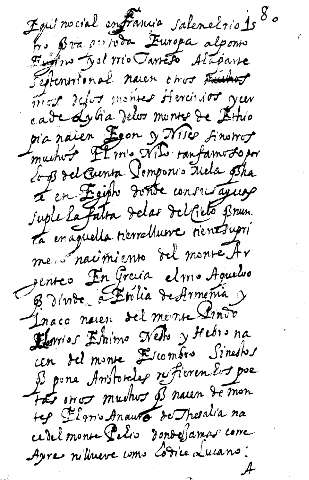 80
Equinocial en francia salen el rio is
tro q̃ va partida Europa al ponto
Euxino y el rio Tarteso A la parte
septentrional nacen otros
rrios de los montes Hercinios y cer
ca de Lybia de los montes de Ethio
pia nacen Egon y Nises sin otros
muchos El rrio Nilo tan famoso por
lo q̃ del Cuenta Pomponio Mela q̃ ha
ze en Egipto donde con sus aguas
suple la falta de las del Cielo q̃ nun
ca en aquella tierra llueve tiene su pri
mero nacimiento del monte Ar
genteo En Grecia el rrio Aqueloo
q̃ divide a Etilia de Armenia y
Inaco nacen del monte Pindo
rrios Estrimo Nesto y Hebro na
cen del monte Escombro sin estos
q̃ pone Aristoteles refieren los poe
tas otros muchos q̃ nacen de mon
tes El rrio Anauro de Thesalia na
ce del monte Pelio donde jamas corre
Ayre ni llueve como lo dice Lucano:
A